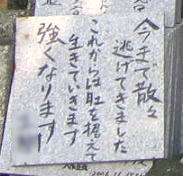 今まで散々
逃げてきました
これからは肚を据えて
生きていきます
強くなります